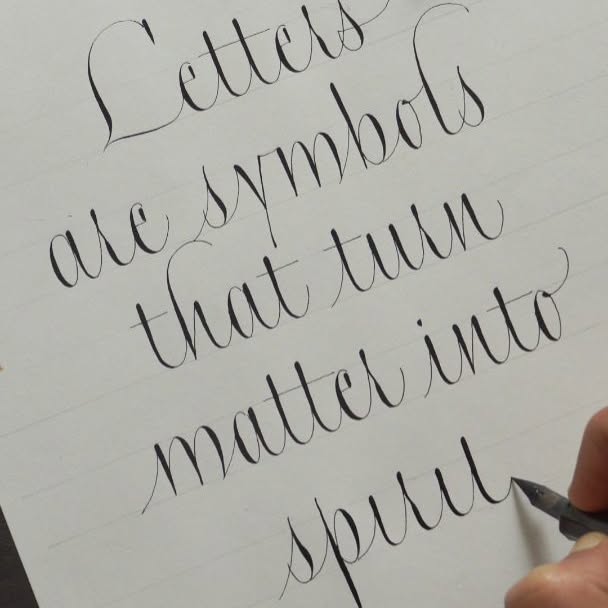 Letters
are symbols
that turn
matter into
spirit